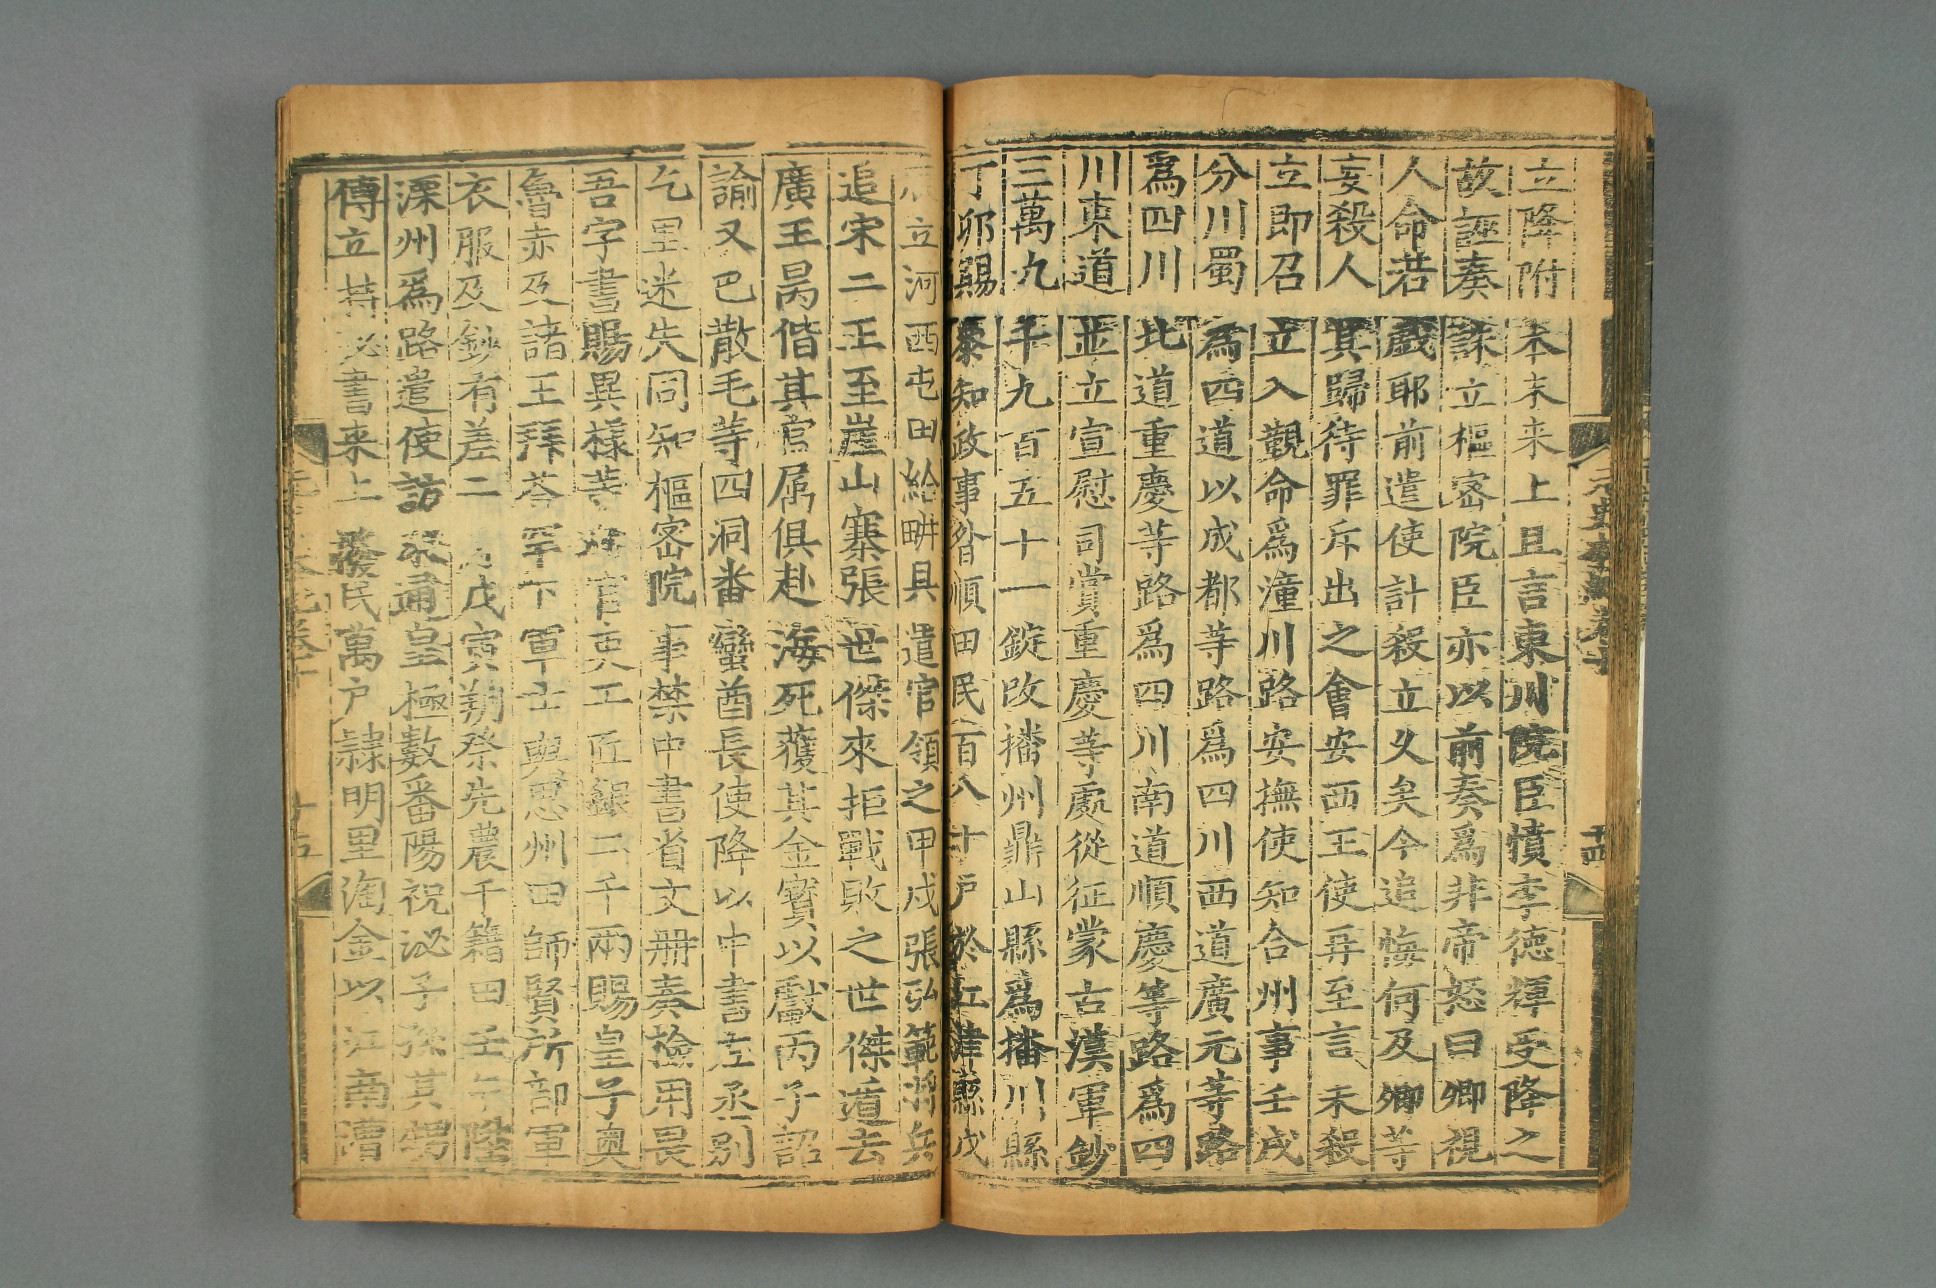 立降附本末来上且言東川院臣憤李德輝受降之
故誣奏誅立樞密院臣亦以前奏爲非帝怒曰卿視
人命若戲耶前遣使計殺立久矣今追悔何及卿等
妄殺人其歸待罪斥出之會安西王使再至言未殺
立即召立入覲命爲潼川路安撫使知合州事壬戌
分川蜀爲四道以成都等路爲四川西道廣元等路
爲四川北道重慶等路爲四川南道順慶等路爲四
川東道並立宣慰司賞重慶等處從征蒙古漢軍鈔
三萬九千九百五十一錠改播州鼎山縣爲播川縣
丁卯賜參知政事昝順田民百八十户於江津縣戊
辰立河西屯田給畊具遣官領之甲戌張弘範將兵
追宋二王至崖山寨張世傑來拒戰敗之世傑遁去
廣王昺偕其官属俱赴海死獲其金寶以獻丙子詔
諭又巴散毛等四洞畨蠻酋長使降以中書左丞别
乞里迷失同知樞密院事禁中書省文册奏檢用畏
吾字書賜異樣等官吏工匠銀二千兩賜皇子奧
魯赤及諸王拜荅罕下軍士與思州田師賢所部軍
衣服及鈔有差二戊寅朔祭先農千籍田壬午陞
溧州爲路遣使訪求通皇極數番陽祝泌子孫其甥
傅立持泌書来上發民萬户隷明里淘金以江南漕
元史卷十
十四
十五